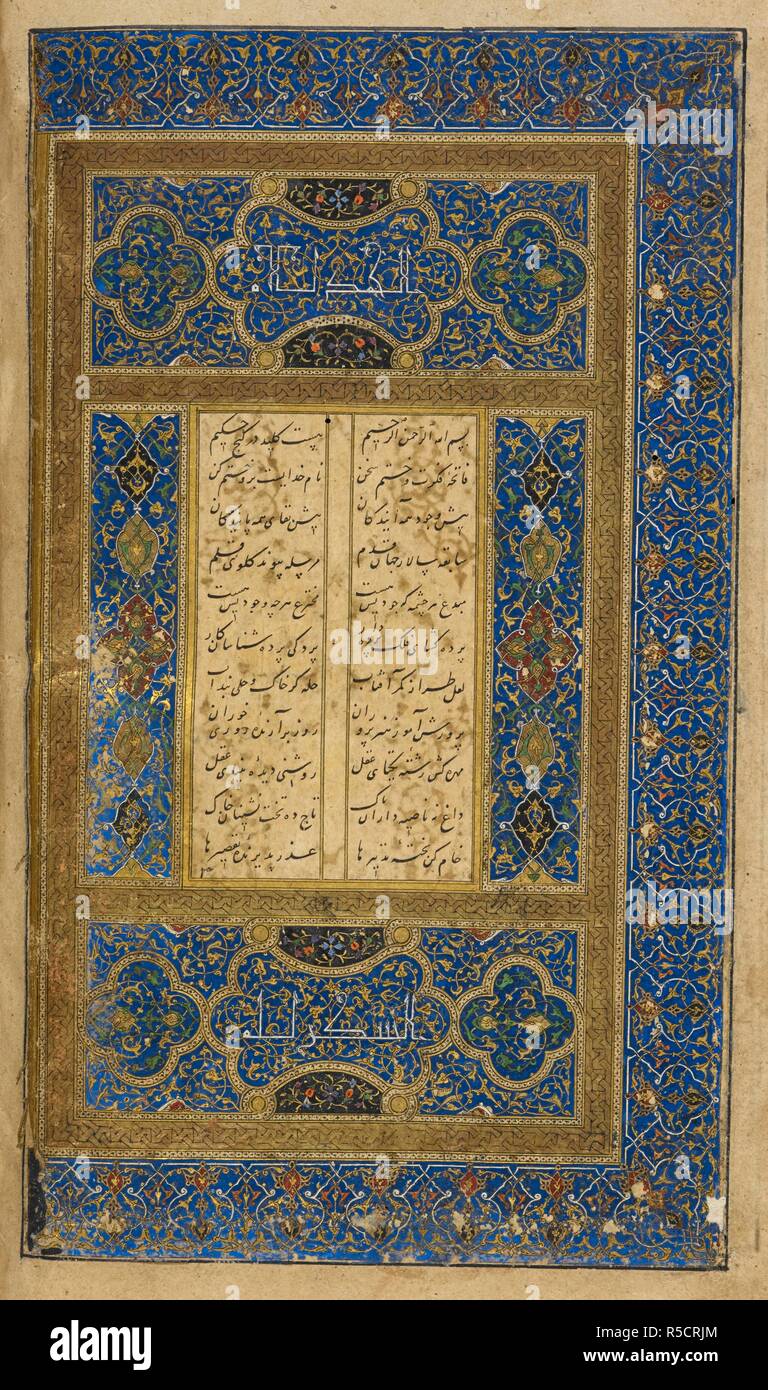 الحمد لله
بسم الله الرحمن الرحیم هست کلید در گنج حکیم
فاتحه فکرت و ختم سخن نام خدایست برو ختم کن
پیش وجود همه آیندگان بیش بقای همه پایندگان
سابقه سالار جهان قدم مرسله پیوند گلوی قلم
مبدع هر چشمه که جودیش هست مخترع هر چه وجودیش هست
پرده گشای فلک پرده دار پردگی پرده شناسان کار
لعل طراز کمر آفتاب حله گر خاک و حلی بند آب
پرورش آموز پروران روز برآرنده روزی خوران
مهره کش رشته یکتای عقل روشنی دیده بینای عقل
داغ نه ناصیه داران پاک تاج ده تخت نشینان خاک
خام کن پخته تدبیرها عذر پذیرنده تقصیرها
الشکر لله
alamy
alamy
Image ID: R5CRJM
www.alamy.com